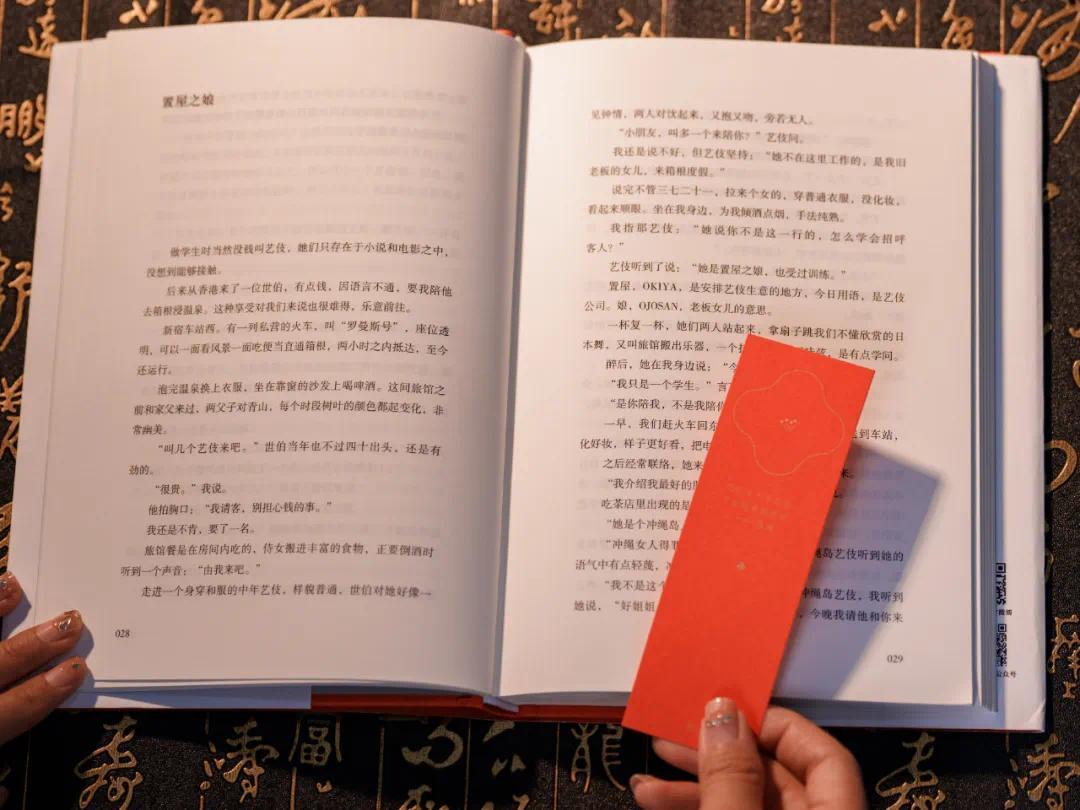 置屋之娘
做学生时当然没钱叫艺伎，她们只存在于小说和电影之中，
没想到能够接触。
后来从香港来了一位世伯，有点钱，因语言不通，要我陪他
去箱根浸温泉。这种享受对我们来说也很难得，乐意前往。
新宿车站西。有一列私营的火车，叫“罗曼斯号”，座位透
明，可以一面看风景一面吃便当直通箱根，两小时之内抵达，至今
还运行。
泡完温泉换上衣服，坐在靠窗的沙发上喝啤酒。这间旅馆之
前和家父来过，两父子对青山，每个时段树叶的颜色都起变化，非
常幽美。
“叫几个艺伎来吧。”世伯当年也不过四十出头，还是有
劲的。
“很贵。”我说。
他拍胸口：“我请客，别担心钱的事。”
我还是不肯，要了一名。
旅馆餐是在房间内吃的，侍女搬进丰富的食物，正要倒酒时
听到一个声音：“由我来吧。”
走进一个身穿和服的中年艺伎，样貌普通，世伯对她好像一
028
见钟情，两人对饮起来，又抱又吻，旁若无人。
“小朋友，叫多一个来陪你？”艺伎问。
我还是说不好，但艺伎坚持：“她不在这里工作的，是我旧
老板的女儿，来箱根度假。”
说完不管三七二十一，拉来个女的，穿普通衣服，没化妆，
看起来顺眼。坐在我身边，为我倾酒点烟，手法纯熟。
我指那艺伎：“她说你不是这一行的，怎么学会招呼
客人？”
艺伎听到了说：“她是置屋之娘，也受过训练。”
置屋，OKIYA，是安排艺伎生意的地方，今日用语，是艺伎
公司。娘，OJOSAN，老板女儿的意思。
一杯复一杯，她们两人站起来，拿扇子跳我们不懂欣赏的日
本舞，又叫旅馆搬出乐器，一个 是有点学问。
醉后，她在我身边说：“
“我只是一个学生。”
“是你陪我，不是我陪
一早，我们赶火车回东 到车站，
化好妆，样子更好看，把
之后经常联络，她来 来。
“我介绍我最好的
吃茶店里出现的是
“她是个冲绳岛
“冲绳女人得 绳岛艺伎听到她的
语气中有点轻蔑，
“我不是这个 冲绳岛艺伎，我听到
她说，“好姐姐 今晚我请他和你来
029